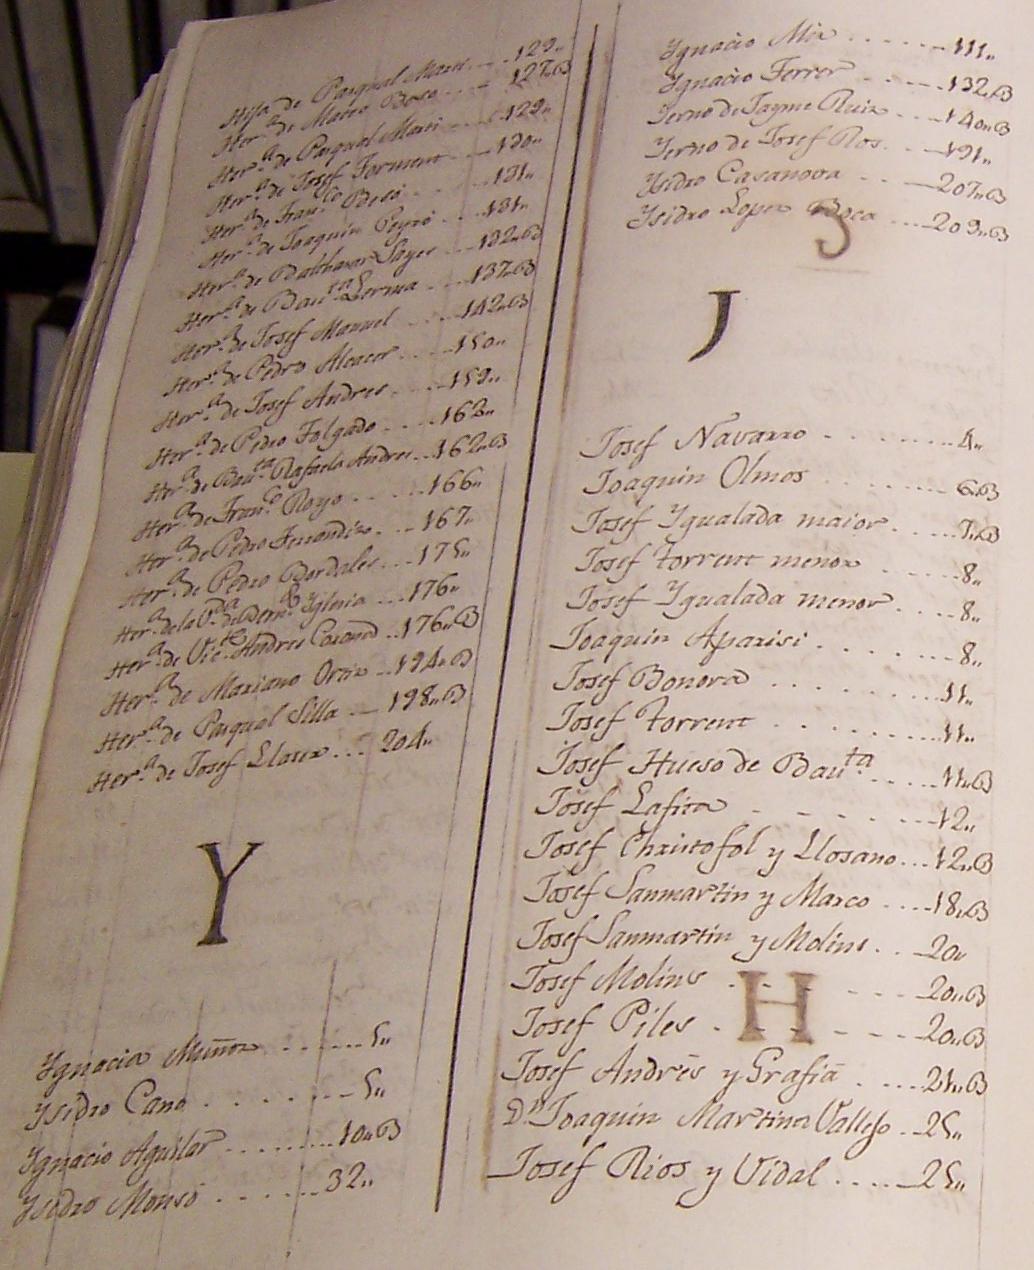 Hija de Pasqual Marti 129,,
Her.ª de Mateo Bosca 127,,B
Her.ª de Pasqual Marti 129,,
Her.ª de Josef Forment 130,,
Her.ª de Fran.co 131,,
Her.ª de Joaquin Peyró 131,,
Her.ª de Balthasar Sayes 132,,B
Her.ª de Bau.ta Lerma 137,,B
Her.ª de Josef Manuel 142,,B
Her.ª de Pedro Alcacer 150,,
Her.ª de Josef Andres 159,,
Her.ª de Pedro Folgado 162,,
Her.ª de Bau.ta Rafaela Andres 162,,B
Her.ª de Fran.co Royo 166,,
Her.ª de Pedro Ferrandiz 167,,
Her.ª de Pedro Bordales 175,,
Her.ª de la V.da de Bern.do Yglesia 176,,
Her.ª de Vic.te Andres Casand 176,,B
Her.ª de Mariano Ortiz 194,,B
Her.ª de Pasqual Silla 198,,B
Her.ª de Josef Llosex 204,,
Y
Ygnacia Muñoz 5,,
Ysidro Cano 5,,
Ygnacio Aguilar 10,,B
Ysidro Monsó 32,,
Ygnacio Mix 111,,
Ygnacio Ferrer 132,,B
Yerno de Jayme Ruiz 140,,B
Yerno de Josef Ros 191,,
Ysidro Casanova 207,,B
Ysidro Lopez Roca 209,,B
J
Josef Navarro 4,,
Joaquin Olmos 6,,B
Josef Ygualada maior 7,,B
Josef Torrent menor 8,,
Josef Ygualada menor 8,,
Joaquin Aparisi 8,,
Josef Bonora 11,,
Josef Torrent 11,,
Josef Hueso de Bau.ta 11,,B
Josef Lafita 12,,
Josef Christofol y Llosano 12,,B
Josef Sanmartin y Marco 18,,B
Josef Sanmartin y Molins 20,,
Josef Molins 20,,B
Josef Piles 20,,B
Josef Andrés y Grafiá 21,,B
D.n Joaquin Martinez Vallejo 25,,
Josef Rios y Vidal 25,,